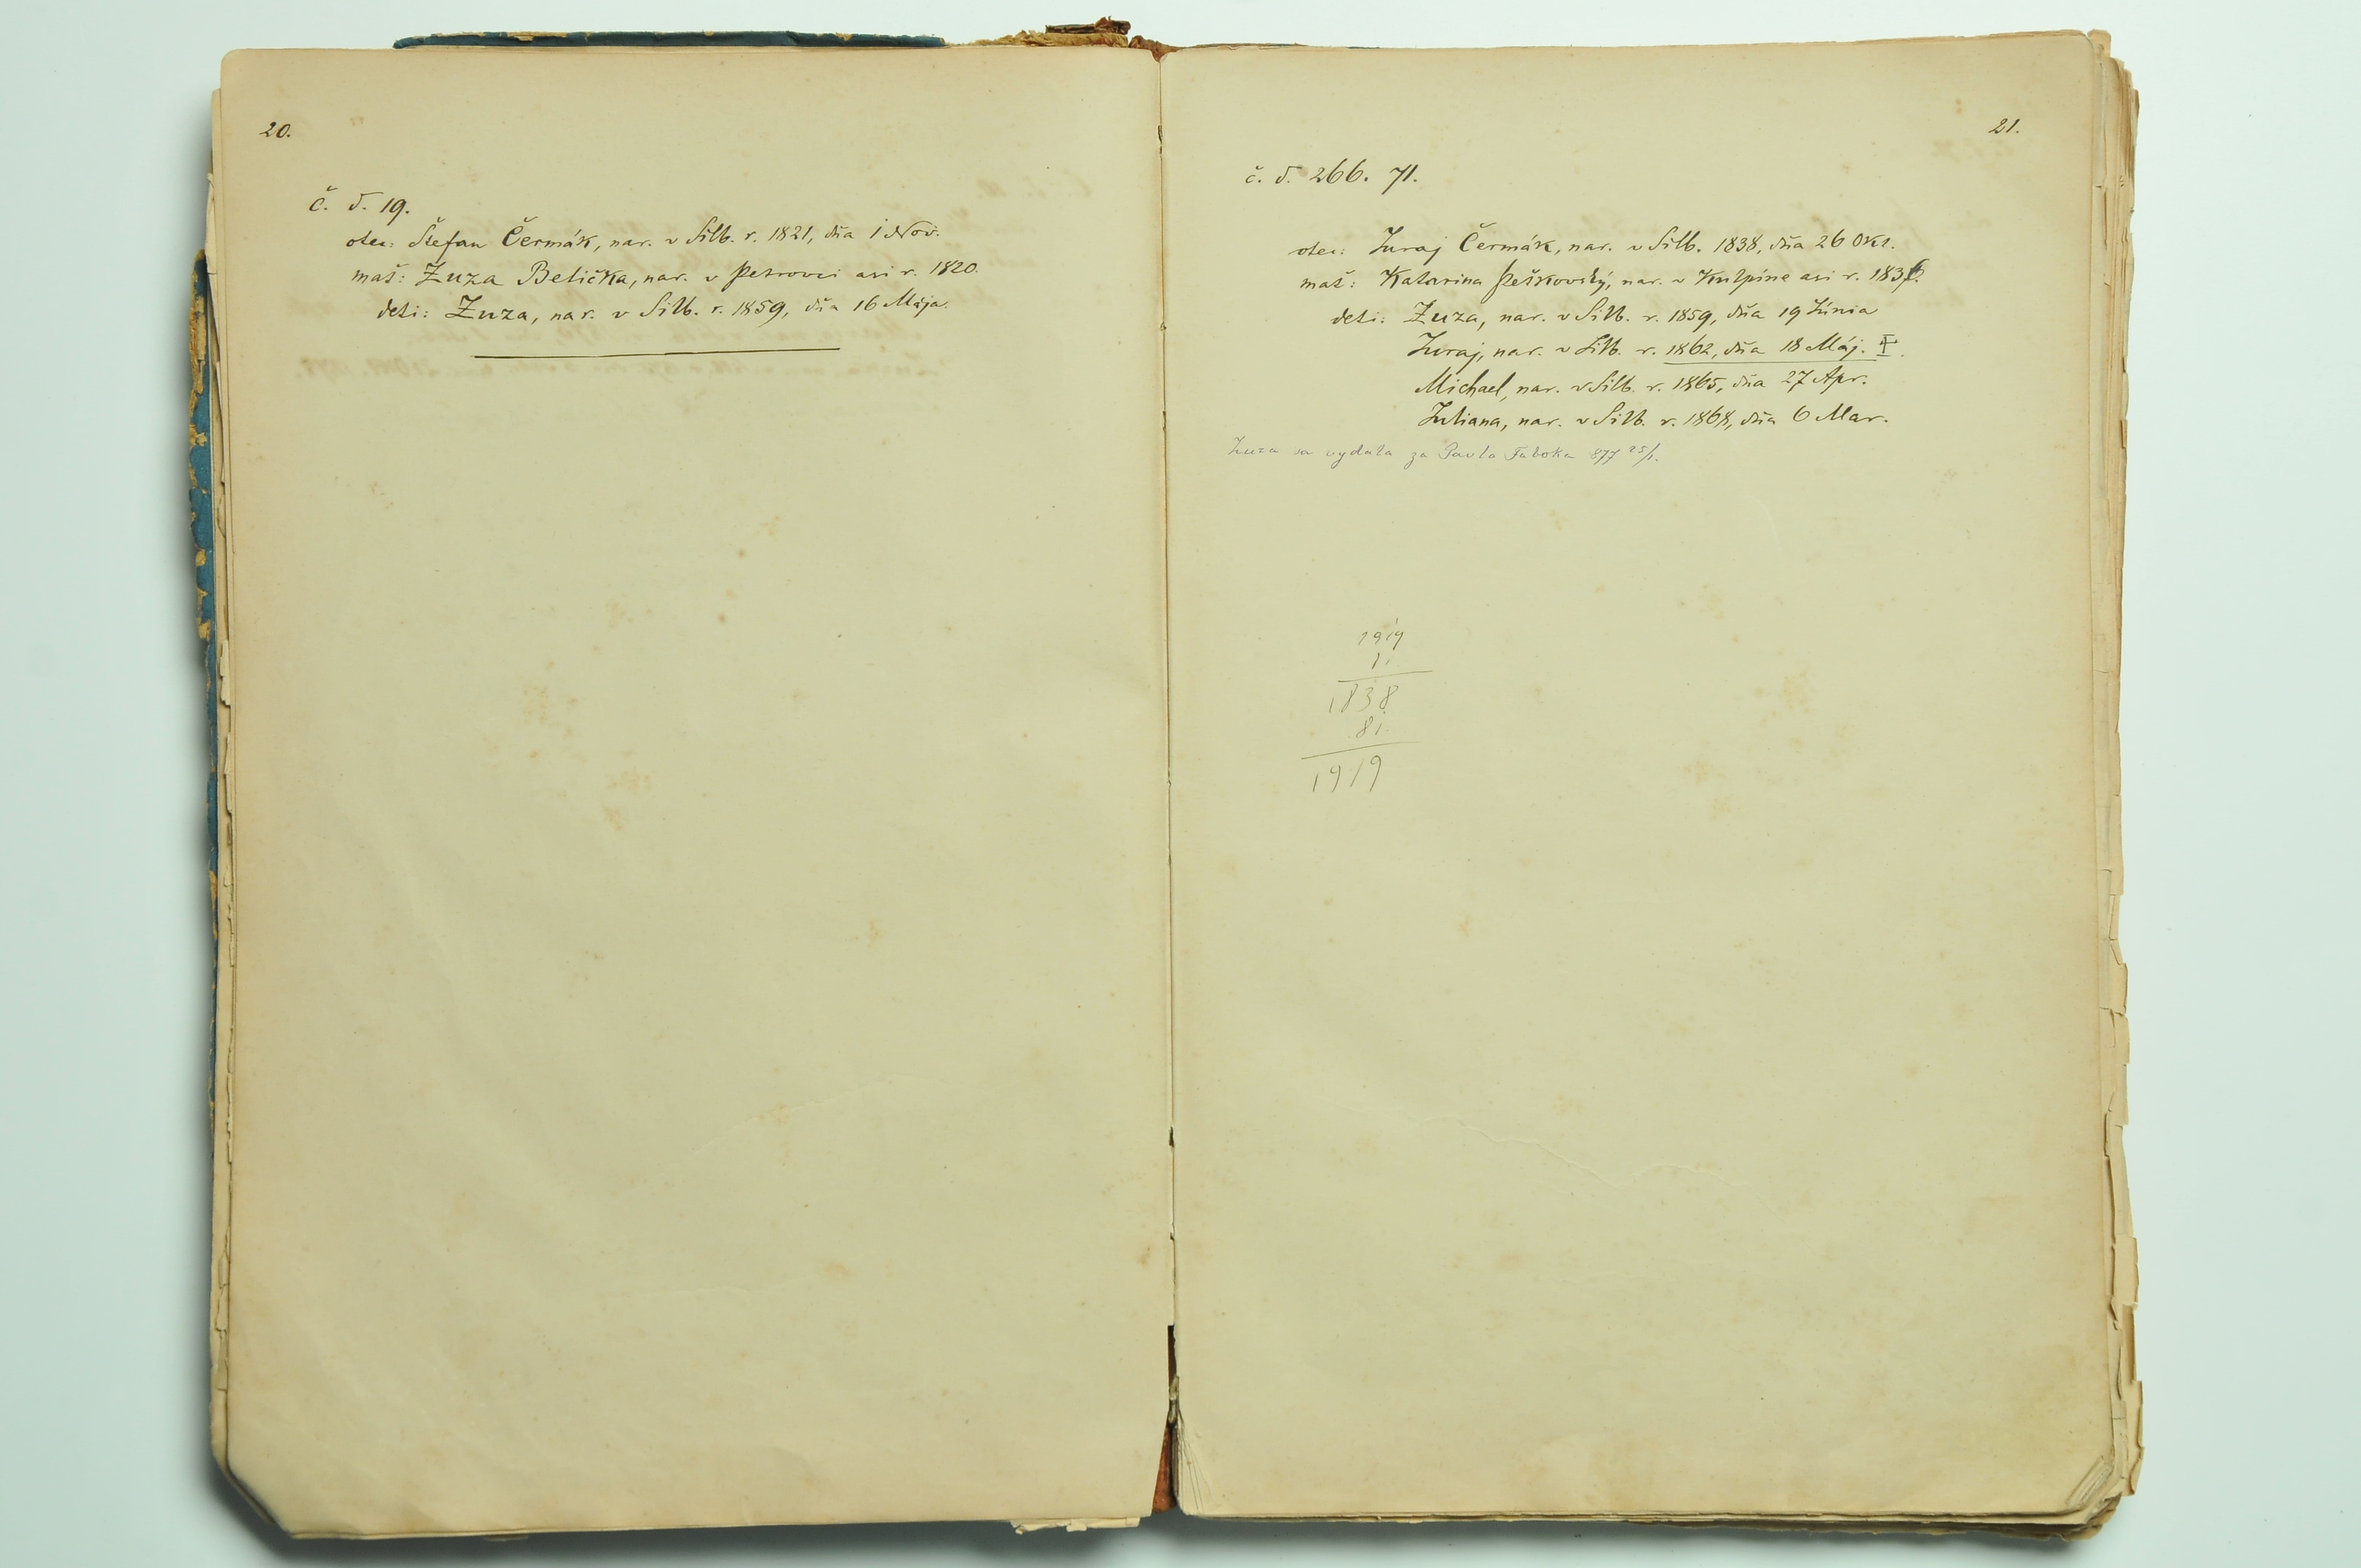 20.
č. d. 19.
otec: Štefan Čermák, nar. v Silb. r. 1821, dňa 1 Nov.
mať: Zuza Belička, nar. v Petrovci asi r. 1820.
deti: Zuza, nar. v Silb. r. 1859, dňa 16 Mája.
21.
č. d. 266. 71.
otec: Juraj Čermák, nar. v Silb. 1838, dňa 26 Okt.
mať: Katarina Peškovský, nar. v Kulpíne asi r. 1836.
deti: Zuza, nar. v Silb. r. 1859, dňa 19 Júnia
Juraj, nar. v Silb. r. 1862, dňa 18 Máj.
Michael, nar. v Silb. r. 1865, dňa 27 Apr.
Juliana, nar. v Silb. r. 1868, dňa 6 Mar.
Zuza sa vydala za Pavla Faboka 877 25/1.
1919
1838
81
1919